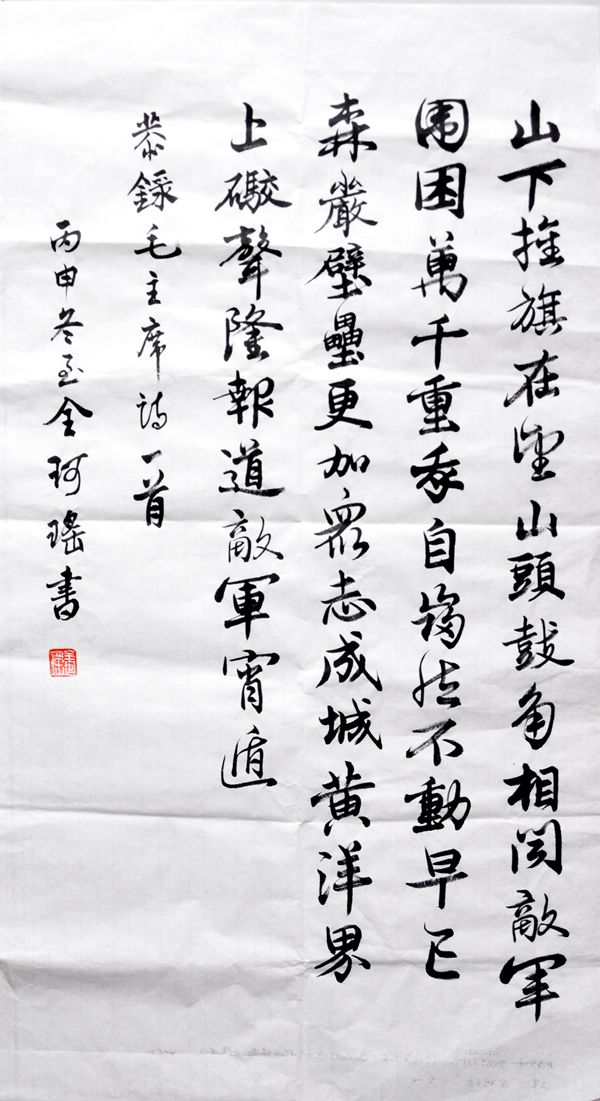 山下旌旗在望山頭鼓角相闻敵军
围困萬千重我自巋然不動早已
森嚴壁壘更加眾志成城黄洋界
上礮聲隆報道敵軍宵遁
恭錄毛主席詩一首
丙申冬至金珂瑤書